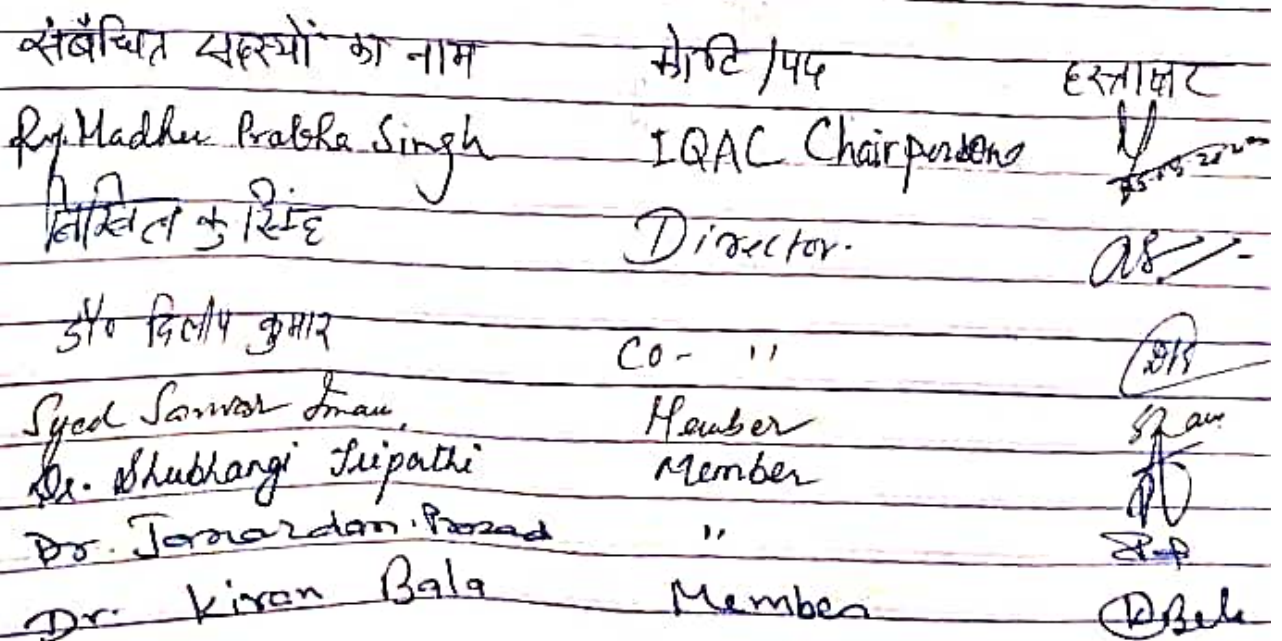 संबंधित सदस्यों का नाम कोटि/पद हस्ताक्षर
Madhu Prabha Singh IQAC Chairperson
निखिल कु सिंह Director.
डॉ० दिलीप कुमार Co- "
Syed Sarwar Imam Member
Dr. Shubhangi Tripathi Member
Dr. Janardan Prasad "
Dr. Kiran Bala Member KBala